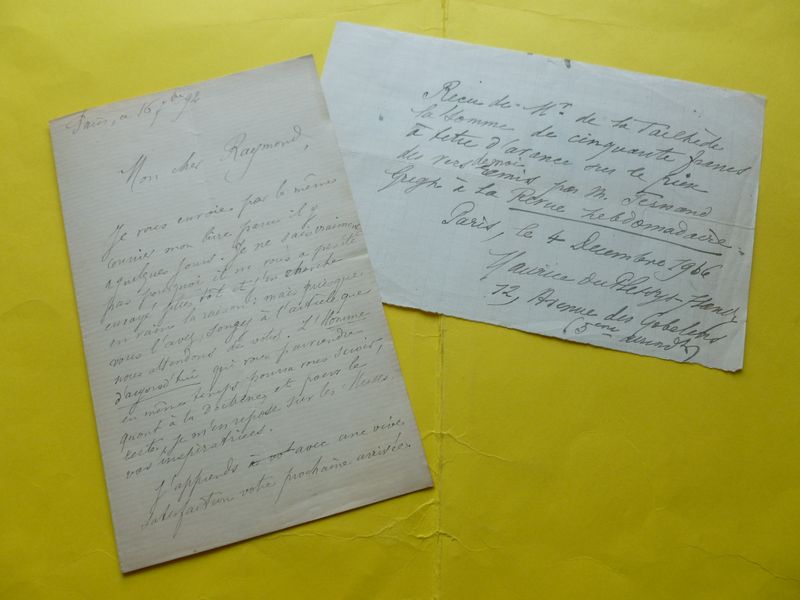 Paris, ce 16 9bre 92
Mon cher Raymond,
Je vous envoie par le même
courrier mon livre paru il y
a quelques jours. Je ne sais vraiment
pas pourquoi il ne vous a pas été
envoyé plus tôt et j'en cherche
en vain la raison; mais puisque
vous l'avez, songez à l'article que
nous attendons de vous. L'Homme
d'aujourd'hui qui vous parviendra
en même temps pourra vous servir,
quant à la doctrine, et pour le
reste, je m'en repose sur les Muses
vos inspiratrices.
J'apprends avec une vive
satisfaction votre prochaine arrivée.
Reçu de Mr de la Tailhède
la somme de cinquante francs
à titre d'avance sur le prix
des vers de moi remis par M. Fernand
Gregh à la Revue hebdomadaire.
Paris, le 4 Décembre 1906
Maurice du Plessys-Flandre
12, Avenue des Gobelins
(5ème arrondt)